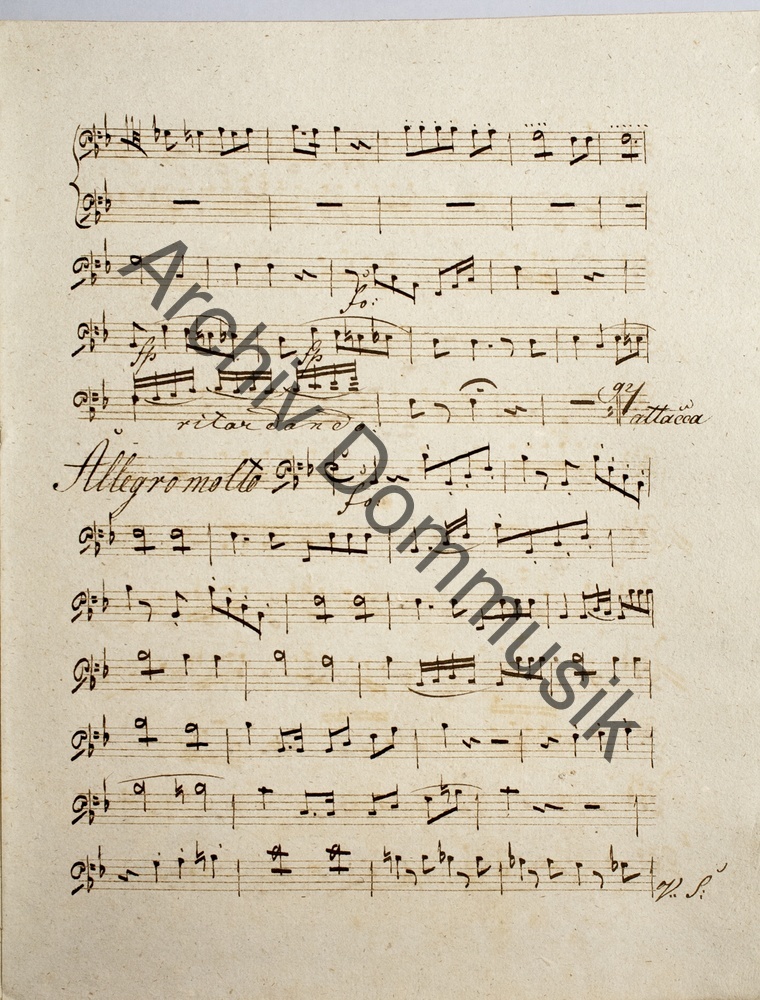 fo:
fp fp
ritardando.
attacca
Allegro molto
fo:
V. S:
Archiv Dommusik